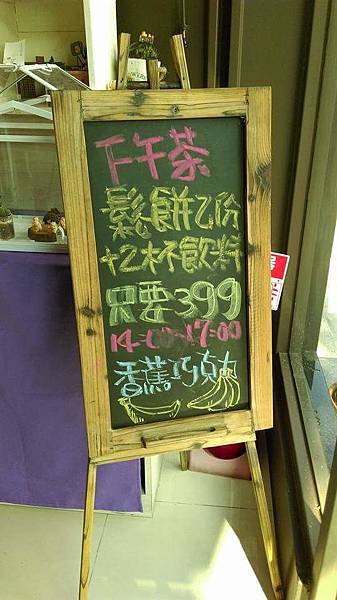 下午茶
鬆餅乙份
+2杯飲料
只要399
14:00-17:00
香蕉巧克力